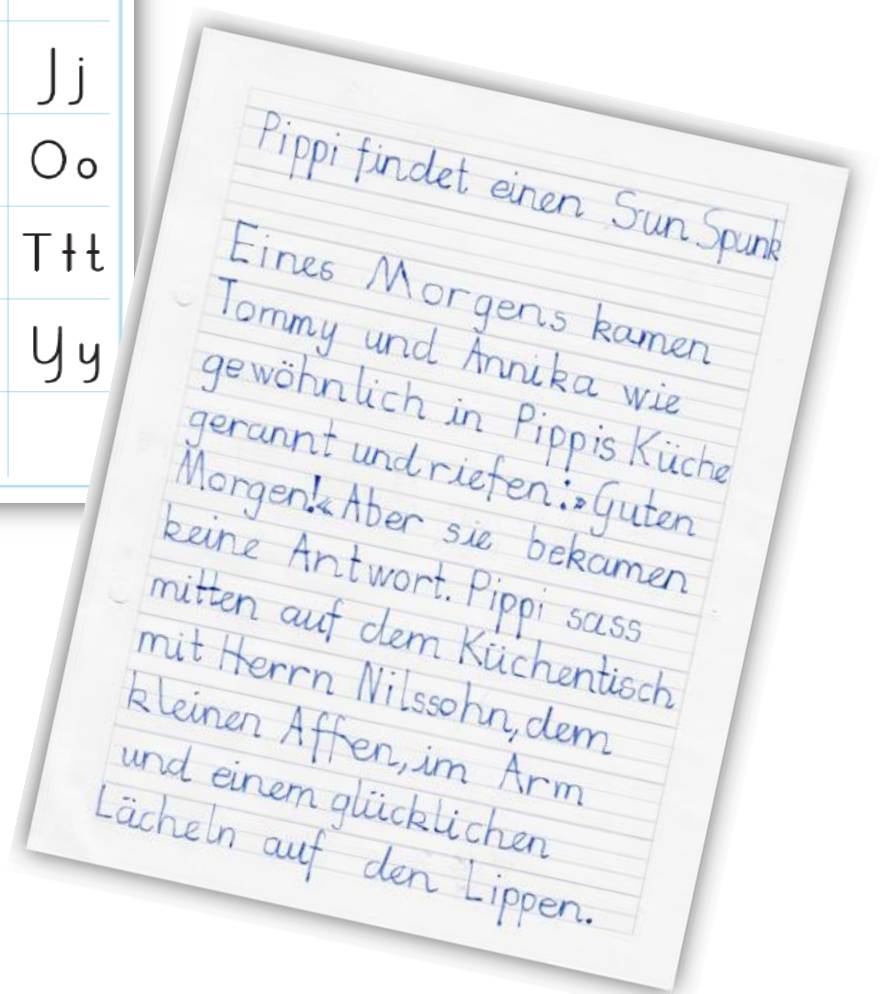 Jj
Oo
Ttt
Yy
Pippi findet einen Sun Spunk
Eines Morgens kamen
Tommy und Annika wie
gewöhnlich in Pippis Küche
gerannt und riefen: »Guten
Morgen!« Aber sie bekamen
keine Antwort. Pippi sass
mitten auf dem Küchentisch
mit Herrn Nilssohn, dem
kleinen Affen, im Arm
und einem glücklichen
Lächeln auf den Lippen.